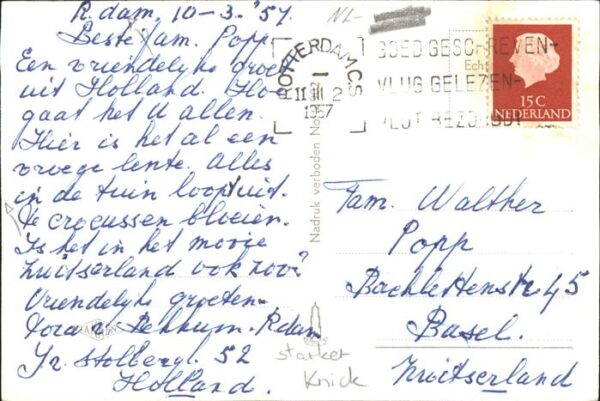 R.dam, 10-3.'57.
Beste Fam. Popp
Een vriendelyke groet
uit Holland. Hoe
gaat het U allen.
Hier is het al een
vroege lente. Alles
in de tuin loopt uit.
De crocussen bloeien.
Is het in het mooie
Zwitserland ook zoo?
Vriendelyke groeten.
Dora v. R.dam
Jr. Stolbergl. 52
Holland.
NL-
ROTTERDAM C.S
11 III 2
1957
GOED GESCHREVEN-
VLUG GELEZEN-
VLOT BEZORGD!
Echt
15 C
NEDERLAND
Nadruk verboden No.
Fam. Walther
Popp
Bachlettenstr 45
Basel.
Zwitserland
starker
Knick